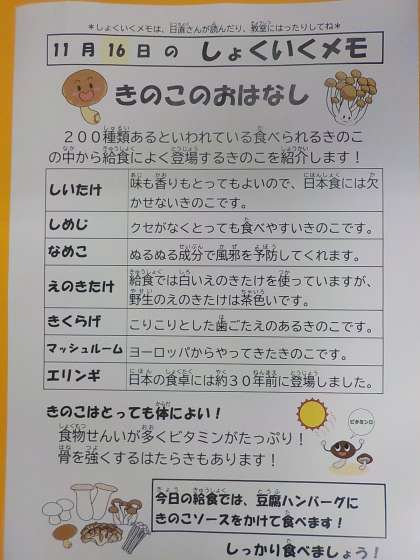 ＊しょくいくメモは、日直さんが読んだり、教室にはったりしてね＊
11月16日の しょくいくメモ
きのこのおはなし
２００種類あるといわれている食べられるきのこ
の中から給食によく登場するきのこを紹介します！
しいたけ 味も香りもとってもよいので、日本食には欠
かせないきのこです。
しめじ クセがなくとっても食べやすいきのこです。
なめこ ぬるぬる成分で風邪を予防してくれます。
えのきたけ 給食では白いえのきたけを使っていますが、
野生のえのきたけは茶色いです。
きくらげ こりこりとした歯ごたえのあるきのこです。
マッシュルーム ヨーロッパからやってきたきのこです。
エリンギ 日本の食卓には約３０年前に登場しました。
きのこはとっても体によい！
食物せんいが多くビタミンがたっぷり！
骨を強くするはたらきもあります！
ビタミンD
今日の給食では、豆腐ハンバーグに
きのこソースをかけて食べます！
しっかり食べましょう！